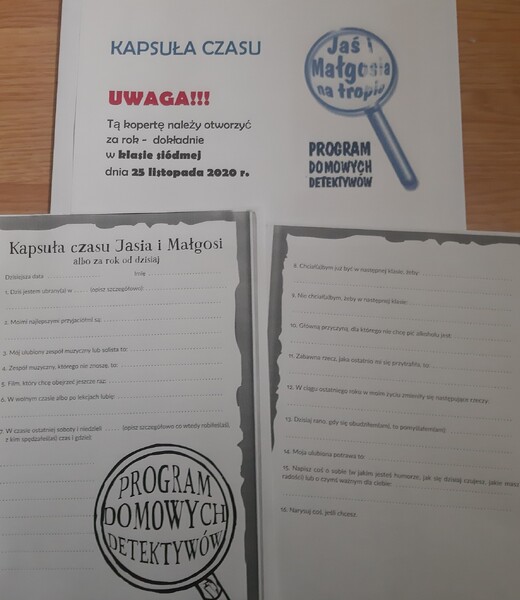 KAPSUŁA CZASU
UWAGA!!!
Tą kopertę należy otworzyć
za rok - dokładnie
w klasie siódmej
dnia 25 listopada 2020 r.
Jaś i
Małgosia
na tropie
PROGRAM
DOMOWYCH
DETEKTYWÓW
Kapsuła czasu Jasia i Małgosi
albo za rok od dzisiaj
Dzisiejsza data Imię
1. Dziś jestem ubrana(y) w (opisz szczegółowo):
2. Moimi najlepszymi przyjaciółmi są:
3. Mój ulubiony zespół muzyczny lub solista to:
4. Zespół muzyczny, którego nie znoszę, to:
5. Film, który chcę obejrzeć jeszcze raz:
6. W wolnym czasie albo po lekcjach lubię:
7. W czasie ostatniej soboty i niedzieli (opisz szczegółowo co wtedy robiłeś(aś)
z kim spędzałeś(aś) czas i gdzie):
PROGRAM
DOMOWYCH
DETEKTYWÓW
8. Chciał(a)bym już być w następnej klasie, żeby:
9. Nie chciał(a)bym, żeby w następnej klasie:
10. Główną przyczyną, dla którego nie chcę pić alkoholu jest:
11. Zabawna rzecz, jaka ostatnio mi się przytrafiła, to:
12. W ciągu ostatniego roku w moim życiu zmieniły się następujące rzeczy:
13. Dzisiaj rano, gdy się obudziłem(am), to pomyślałem(am):
14. Moja ulubiona potrawa to:
15. Napisz coś o sobie (w jakim jesteś humorze, jak się dzisiaj czujesz, jakie masz
radości) lub o czymś ważnym dla ciebie:
16. Narysuj coś, jeśli chcesz.